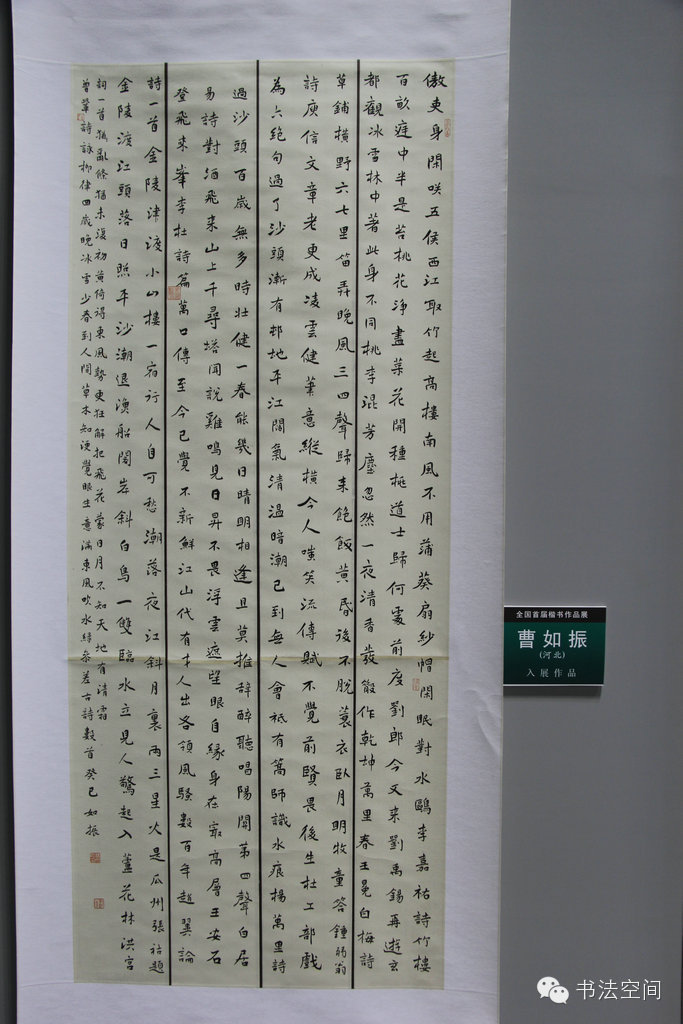 傲吏身閑咲五侯西江取竹起高樓南風不用蒲葵扇紗帽閑眠對水鷗李嘉祐詩竹樓
百畝庭中半是苔桃花淨盡菜花開種桃道士歸何處前度劉郎今又来劉禹錫再遊玄
都觀冰雪林中著此身不同桃李混芳塵忽然一夜清香發散作乾坤萬里春王冕白梅詩
草鋪橫野六七里笛弄晚風三四聲歸来飽飯黃昏後不脫蓑衣臥月明牧童答鍾弱翁
詩庾信文章老更成凌雲健筆意縱橫今人嗤笑流傳賦不覺前賢畏後生杜工部戲
為六絕句過了沙頭漸有邨地平江闊氣清温暗潮已到無人會衹有篙師識水痕楊萬里詩
過沙頭百歲無多時壯健一春能幾日晴明相逢且莫推辭醉聽唱陽關第四聲白居
易詩對酒飛来山上千尋塔聞說雞鳴見日昇不畏浮雲遮望眼自緣身在最高層王安石
登飛来峯李杜詩篇萬口傳至今已覺不新鮮江山代有才人出各領風騷數百年趙翼論
詩一首金陵津渡小山樓一宿行人自可愁潮落夜江斜月裏兩三星火是瓜州張祜題
金陵渡江頭落日照平沙潮退漁船閣岸斜白鳥一雙臨水立見人驚起入蘆花林洪宮
詞一首亂條猶未初黃倚得東風勢更狂解把飛花蒙日月不知天地有清霜
曾鞏詩詠柳律回歲晚冰雪少春到人間草木知便覺眼生意滿東風吹水緑參差古詩數首癸巳如振
全国首届楷书作品展
曹如振
(河北)
入展作品
书法空间